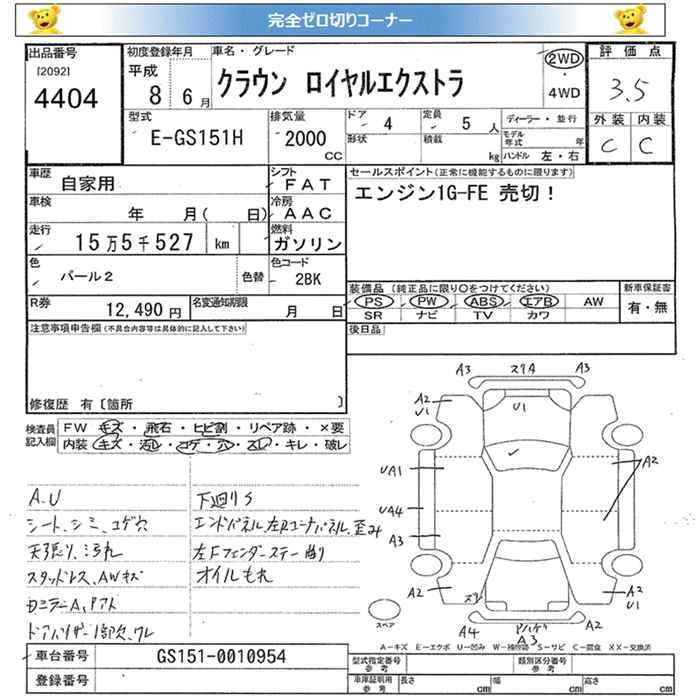 完全ゼロ切りコーナー
出品番号
[2092]
4404
初度登録年月
平成 8 6月
車名・グレード
クラウン ロイヤルエクストラ
2WD
・
4WD
評価点
3.5
型式
E-GS151H
排気量
2000 CC
ドア 4
形状
定員 5 人
積載 kg
ディーラー・並行
モデル年式 年
ハンドル 左・右
外装 内装
C C
車歴
自家用
シフト
FAT
セールスポイント(正常に機能するものに限ります)
エンジン1G-FE 売切!
車検
年 月( 日)
冷房
AAC
走行
15万5千527 km
燃料
ガソリン
色
パール2
色替
色コード
2BK
装備品(純正品に限り○をつけてください)
PS PW ABS エアB AW
SR ナビ TV カワ
新車保証書
有・無
R券
12,490円
名変通知期限
月 日
後日品
注意事項申告欄(不具合内容等は具体的に記入して下さい)
修復歴 有〔箇所 〕
検査員記入欄
FW キズ・飛石・ヒビ割・リペア跡・×要
内装 キズ・汚れ・コゲ・穴・スレ・キレ・破レ
A.U
シート、シミ、コゲ穴
天張り、汚れ
スタッドレス、AWキズ
ドアバイザー1部欠、ワレ
下廻りS
エンドパネル、左Rコーナーパネル、歪み
左Fフェンダーステー曲り
オイルもれ
A3 スリA A3
A2 U1
U1
A2
UA1
UA4
A3
A2
A2
A2 U1
スリ
A4
A3
A2
スペア
A-キズ E-エクボ U-凹み W-補修跡 S-サビ C-腐食 XX-交換済
車台番号
GS151-0010954
登録番号
型式指定番号 参考
類別区分番号 参考
車庫証明用 参考
長さ cm
幅 cm
高さ cm